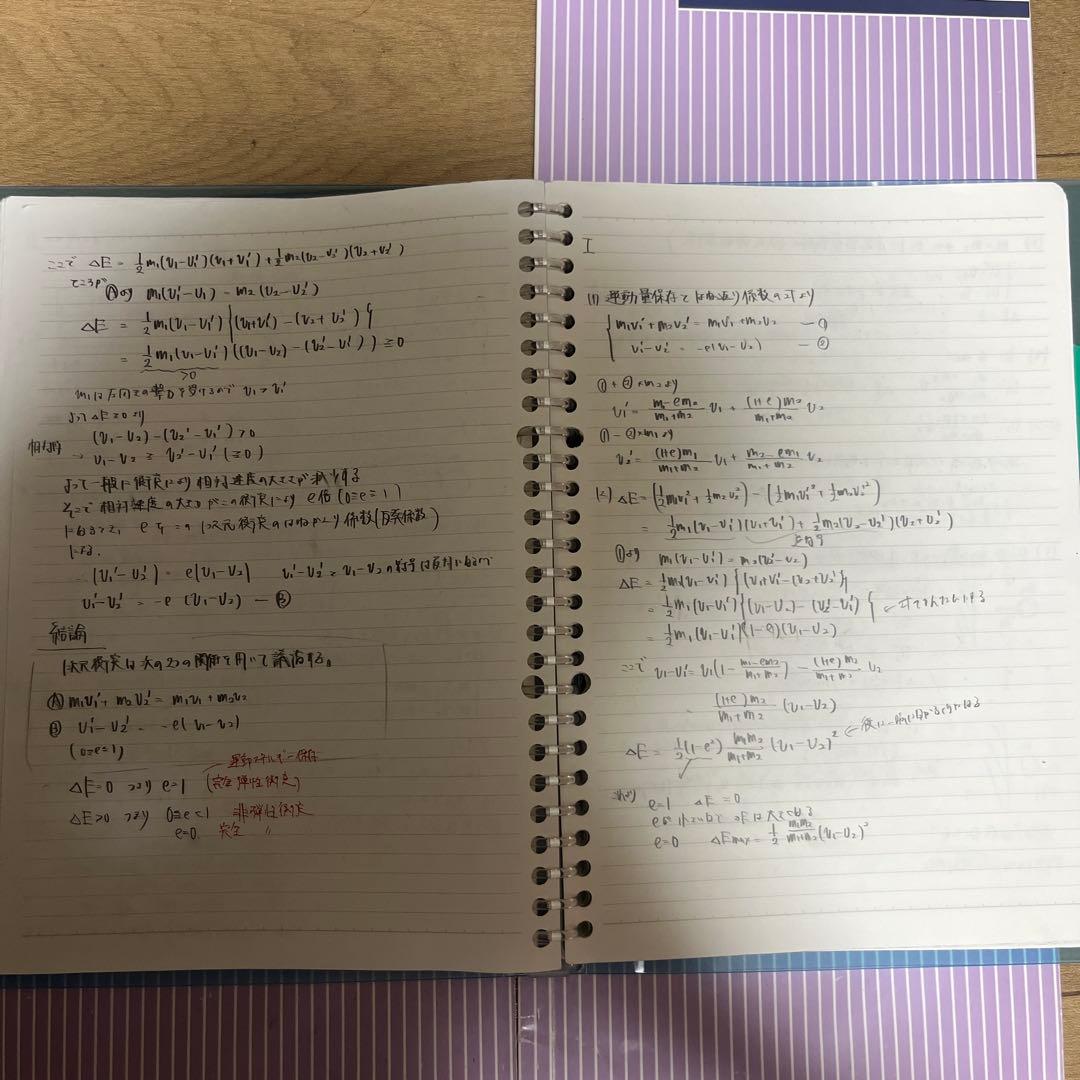 ここで ΔE = 1/2 m₁(v₁-v₁')(v₁+v₁') + 1/2 m₂(v₂-v₂')(v₂+v₂')
ところが
Ⓐより m₁(v₁'-v₁) = m₂(v₂-v₂')
ΔE = 1/2 m₁(v₁-v₁'){(v₁+v₁') - (v₂+v₂')}
= 1/2 m₁(v₁-v₁')((v₁-v₂) - (v₂'-v₁')) ≧ 0
>0
m₁は左向きの撃力を受けるので v₁ > v₁'
よって ΔE ≧ 0 より
(v₁-v₂) - (v₂'-v₁') > 0
→ v₁-v₂ ≧ v₂'-v₁' (≧0)
よって一般に衝突により相対速度の大きさが減少する
そこで 相対速度の大きさがこの衝突により e倍 (0≦e≦1)
になるとし、eをこの1次元衝突のはねかえり係数(反発係数)
|v₁'-v₂'| = e|v₁-v₂| v₁'-v₂'とv₁-v₂の符号は反対になるので
v₁'-v₂' = -e (v₁-v₂) ― Ⓑ
結論
1次元衝突は次の2つの関係を用いて議論する。
Ⓐ m₁v₁' + m₂v₂' = m₁v₁ + m₂v₂
Ⓑ v₁'-v₂' = -e(v₁-v₂)
(0≦e≦1)
運動エネルギー保存
ΔE=0 つまり e=1 (完全弾性衝突)
ΔE>0 つまり 0≦e<1 非弾性衝突
e=0. 完全 〃
I
(1) 運動量保存とはね返り係数の式より
m₁v₁' + m₂v₂' = m₁v₁ + m₂v₂ ―①
v₁'-v₂' = -e(v₁-v₂) ―②
①+②×m₂より
v₁' = (m₁-em₂)/(m₁+m₂) v₁ + (1+e)m₂/(m₁+m₂) v₂
①-②×m₁より
v₂' = (1+e)m₁/(m₁+m₂) v₁ + (m₂-em₁)/(m₁+m₂) v₂
(2) ΔE = (1/2 m₁v₁² + 1/2 m₂v₂²) - (1/2 m₁v₁'² + 1/2 m₂v₂'²)
= 1/2 m₁(v₁-v₁')(v₁+v₁') + 1/2 m₂(v₂-v₂')(v₂+v₂')
①より m₁(v₁-v₁') = m₂(v₂'-v₂)
ΔE = 1/2 m₁(v₁-v₁'){v₁+v₁'-(v₂+v₂')}
= 1/2 m₁(v₁-v₁'){(v₁-v₂) - (v₂'-v₁')}
= 1/2 m₁(v₁-v₁')(1-e)(v₁-v₂)
ここで v₁-v₁' = v₁(1 - (m₁-em₂)/(m₁+m₂)) - (1+e)m₂/(m₁+m₂) v₂
= (1+e)m₂/(m₁+m₂) (v₁-v₂)
ΔE = 1/2 (1-e²) m₁m₂/(m₁+m₂) (v₁-v₂)²
これより
e=1 ΔE=0
eが小さいほどΔEは大きくなる
e=0 ΔEmax = 1/2 m₁m₂/(m₁+m₂) (v₁-v₂)²